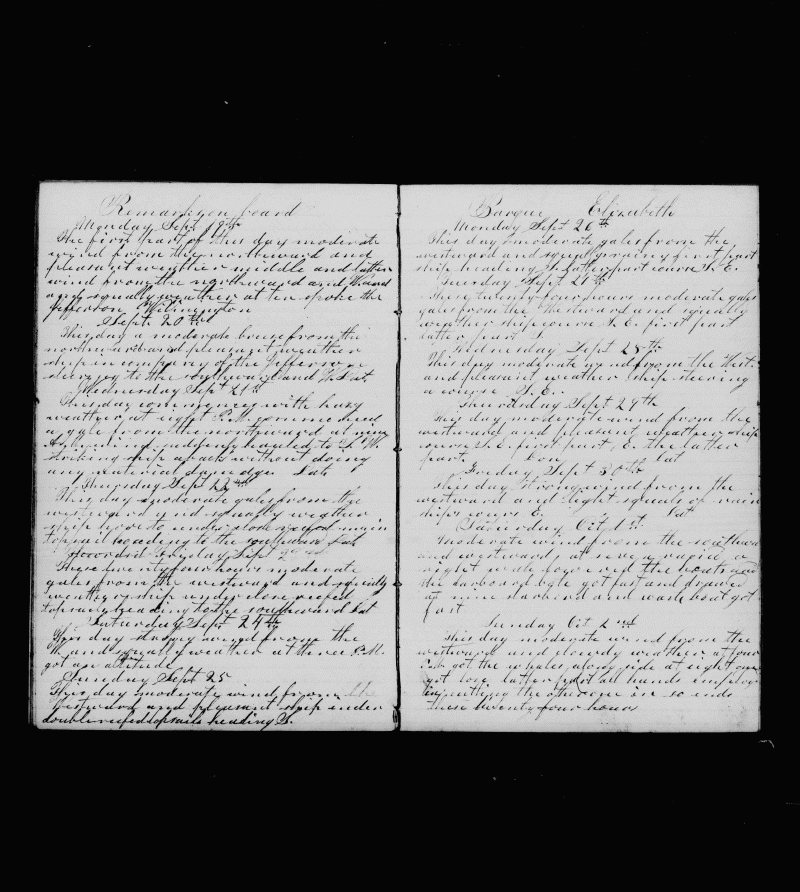 Remarks on board
Monday Sept 19th
The first part of this day moderate
wind from the northward and
pleasant weather middle and latter
wind from the northward and
and squally weather at ten spoke the
Jefferson Wilmington
Sept 20th
This day a moderate breeze from the
northward and pleasant weather
ship in company of the Jefferson
steering to the southward and Lat.
Wednesday Sept 21st
This day commences with hazy
weather at eight P.M. commenced
a gale from the northward at nine
the wind suddenly hauled to S.W.
striking ship aback without doing
any material damage Lat
Thursday Sept 22nd
This day moderate gales from the
westward and squally weather
ship hove to under close reefed main
topsail heading to the southward Lat
Fryday Sept 23rd
These twenty four hours moderate
gales from the westward and squally
weather ship under close reefed
topsails heading to the southward Lat
Saturday Sept 24th
This day strong wind from the
and squally weather at three P.M.
got an altitude
Sunday Sept 25
This day moderate wind from the
Westward and pleasant ship under
double reefed topsails heading S.
Barque Elizabeth
Monday Sept 26th
This day moderate gales from the
westward and squally rainy first part
ship heading S. Latter part course S.E.
Tuesday Sept 27th
These twenty four hours moderate gales
gales from the Westward and squally
weather ship course S.E. first part
latter part S.
Wednesday Sept 28th
This day moderate wind from the West.
and pleasant weather ship steering
a course S.E.
Thursday Sept 29th
This day moderate wind from the
westward and pleasant weather ship
course S.E. first part, E. the latter
part. Lon Lat
Fryday Sept 30th
This day strong wind from the
westward and light squals of rain
ships course E. Lat
Saturday Oct 1st
Moderate wind from the southward
and westward, at seven raised a
right whale lowered the boats and
the larboard boat got fast and drawed
at nine starboard and waist boat got
fast
Sunday Oct 2nd
This day moderate wind from the
westward and cloudy weather at four
P.M. got the whales along side at eight one
got lose latter part all hands employ
in cutting the other one in so ends
these twenty four hours